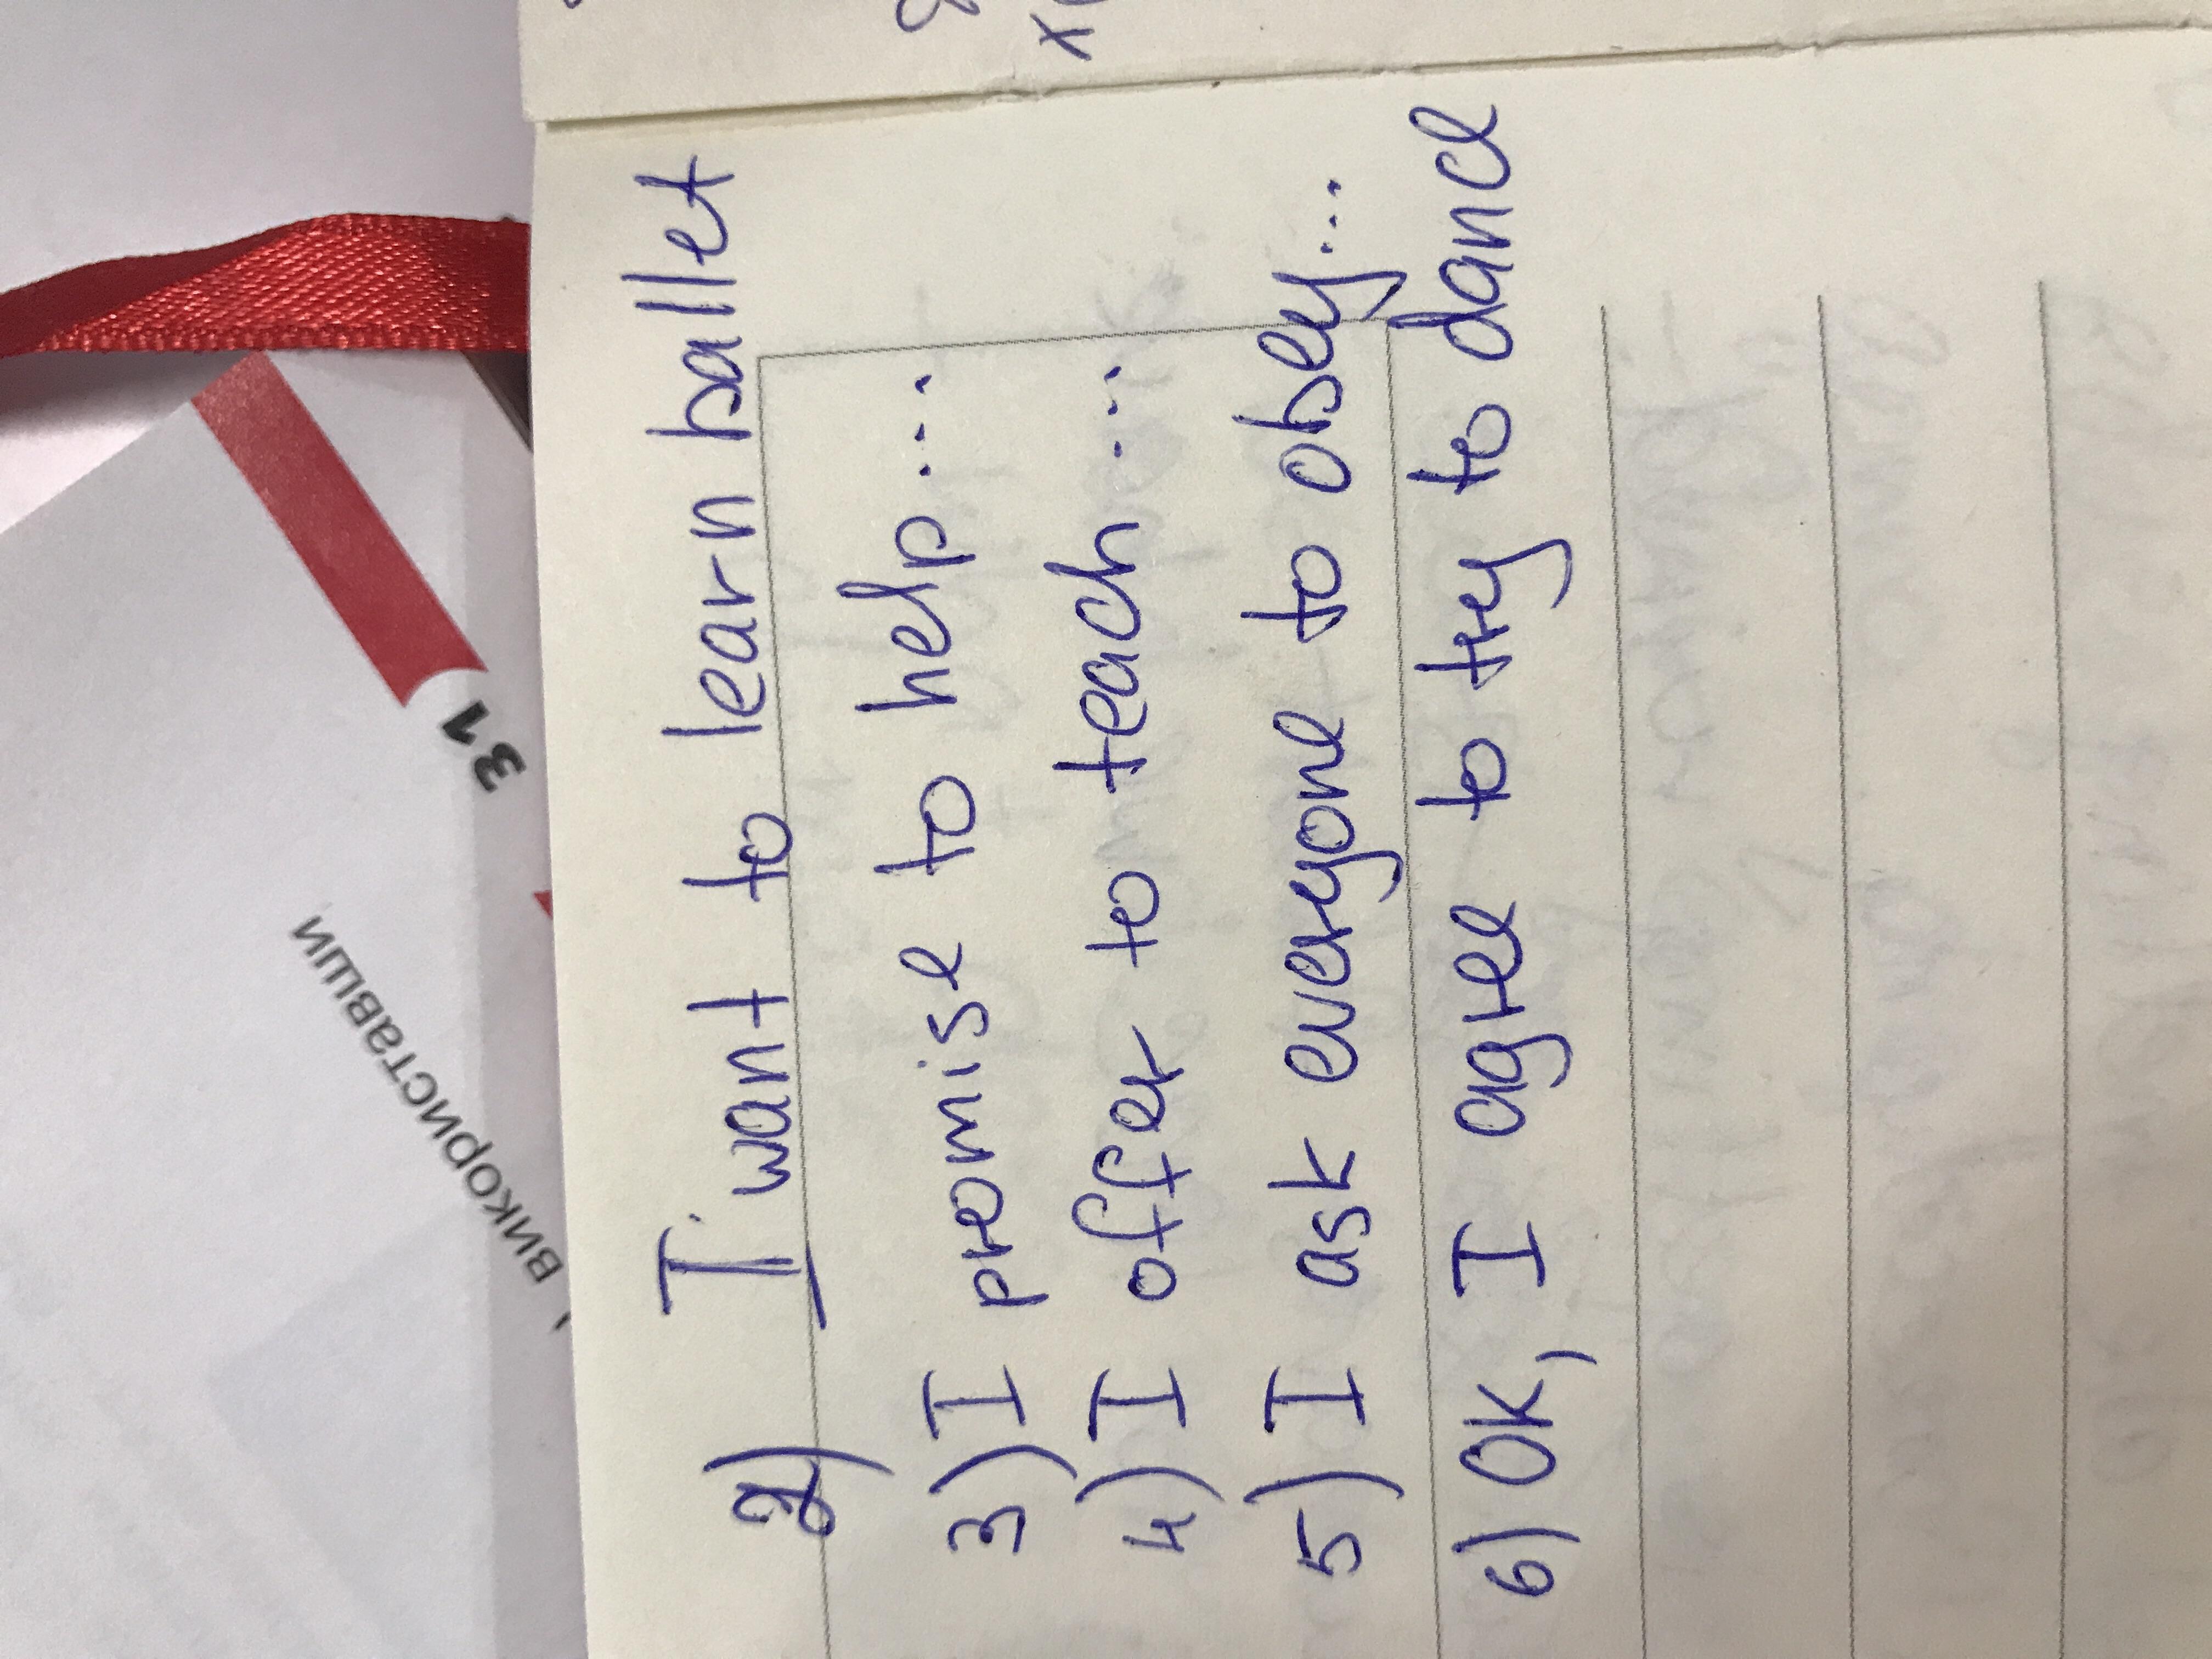 2) I want to learn ballet
3) I promise to help...
4) I offer to teach...
5) I ask everyone to obey...
6) OK, I agree to try to dance
31
використавши